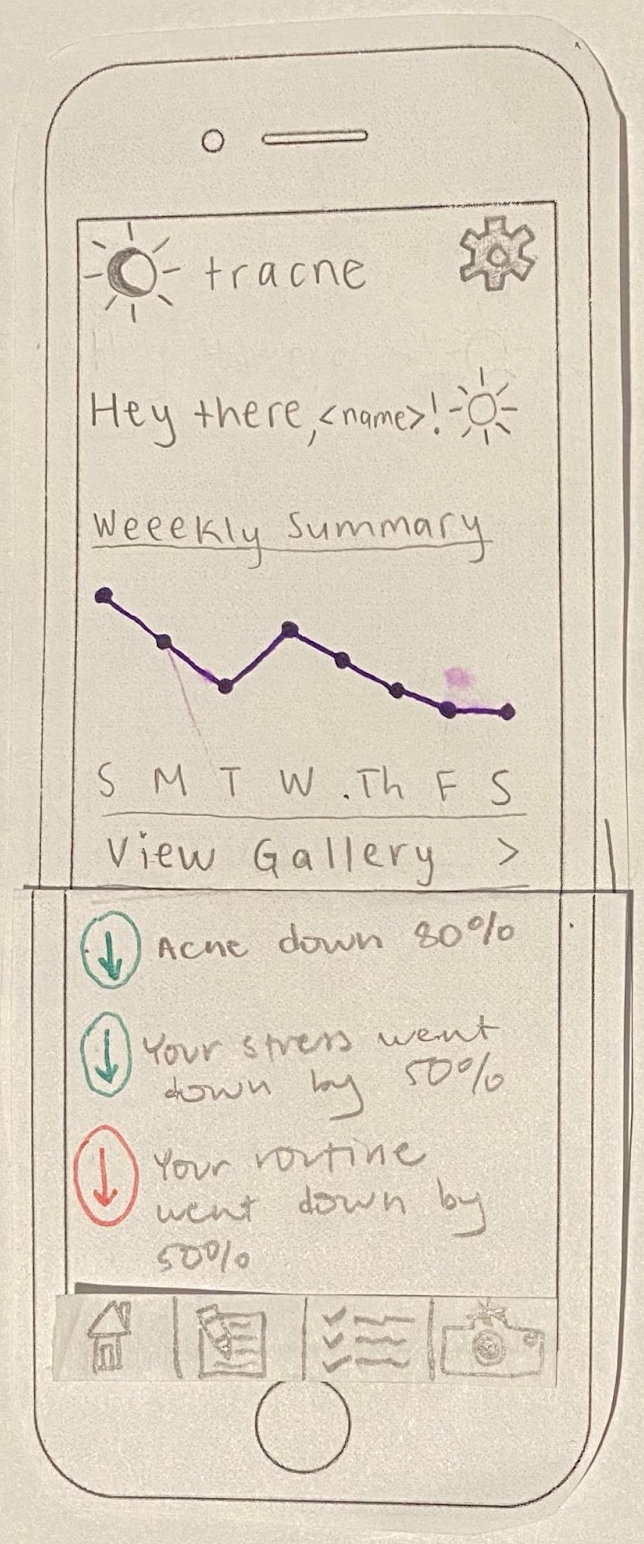 tracne
Hey there, <name>!
Weeekly Summary
S M T W .Th F S
View Gallery >
Acne down 80%
Your stress went
down by 50%
Your routine
went down by
50%